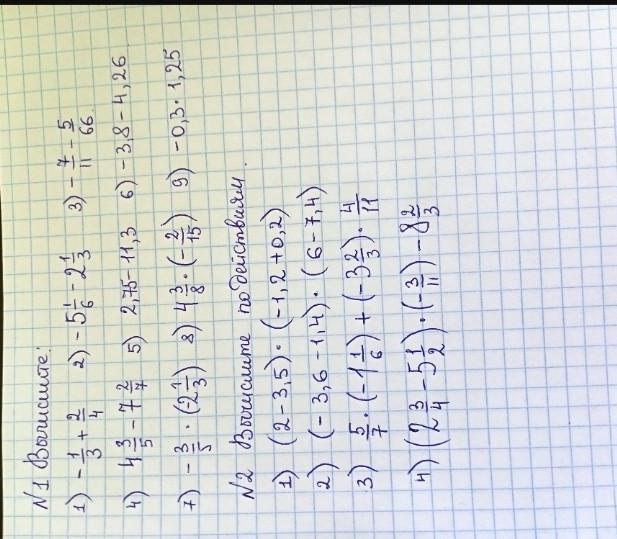 N1 Вычислите:
1) -1/3 + 2/4 2) -5 1/6 - 2 1/3 3) -7/11 - 5/66.
4) 4 3/5 - 7 2/7 5) 2,75 - 11,3 6) -3,8 - 4,26.
7) -3/5 · (-2 1/3) 8) 4 3/8 · (-2/15) 9) -0,3 · 1,25
N2 Вычислите по действиям.
1) (2 - 3,5) · (-1,2 + 0,2)
2) (-3,6 - 1,4) · (6 - 7,4)
3) 5/7 · (-1 1/6) + (-3 2/3) · 4/11
4) (2 3/4 - 5 1/2) · (-3/11) - 8 2/3